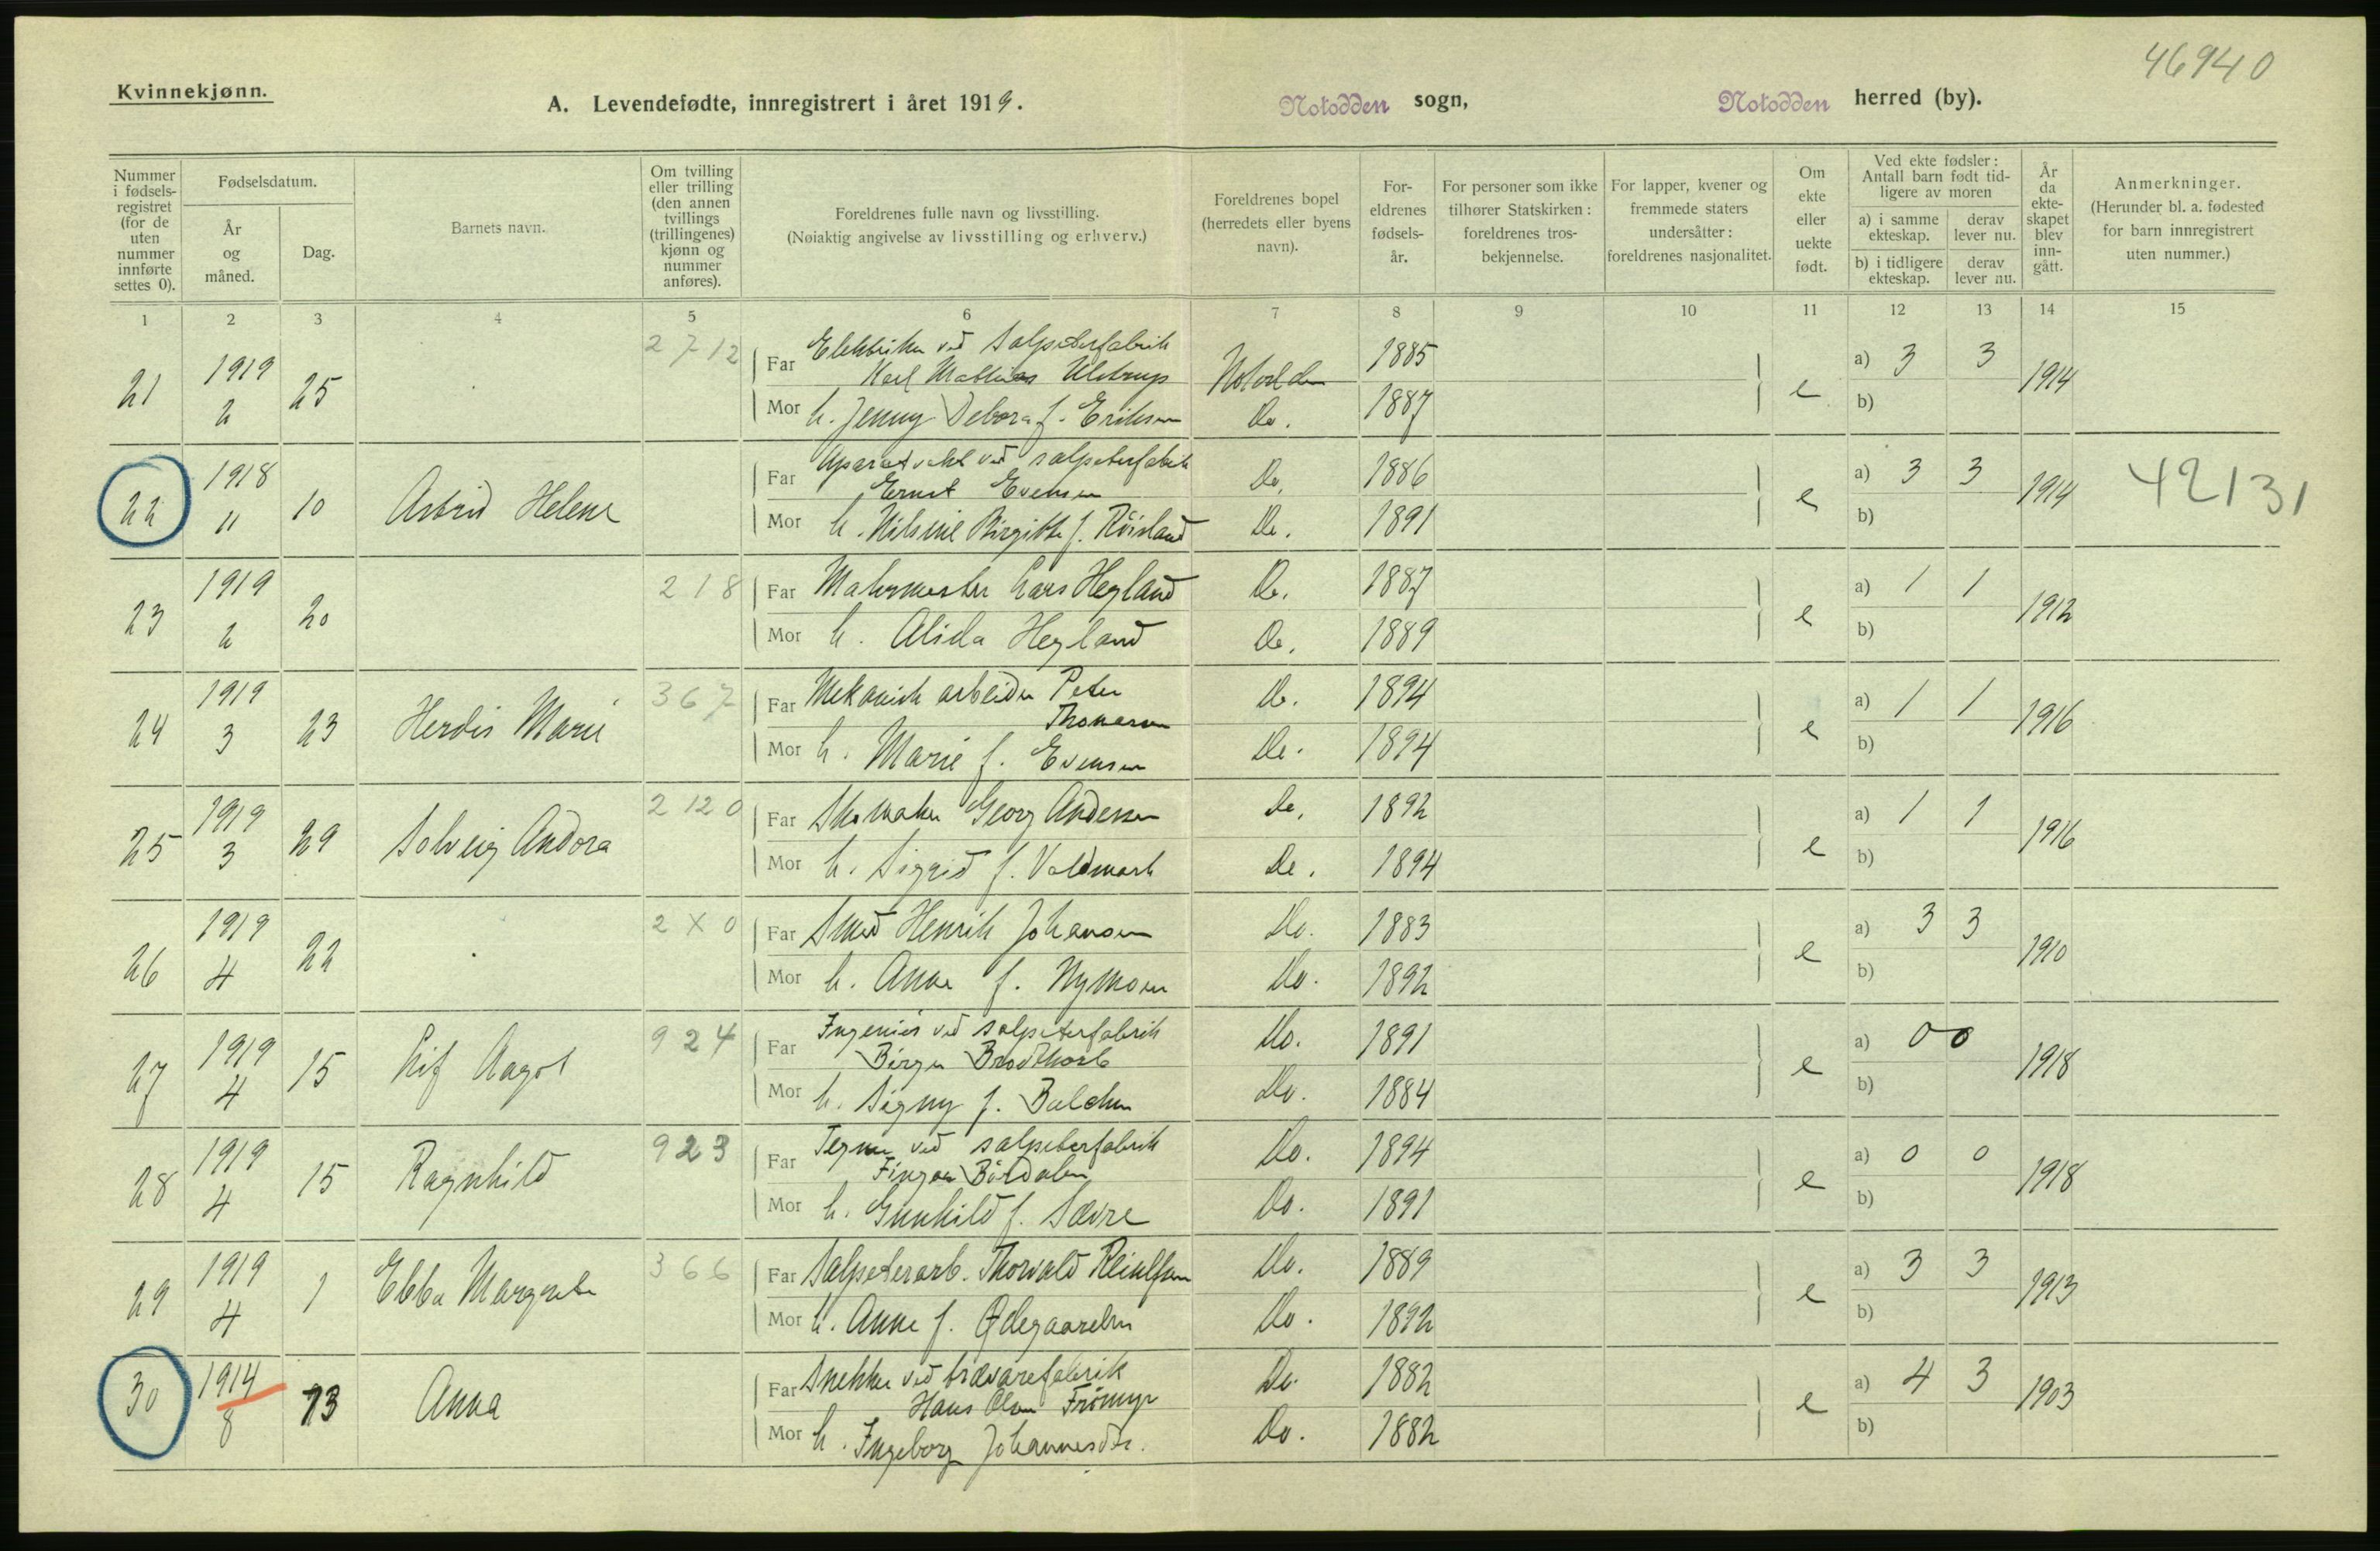 46940
Kvinnekjønn.
A. Levendefødte, innregistrert i året 1919. Notodden sogn, Notodden herred (by).
Nummer i fødsels-registret (for de uten nummer innførte settes 0).
Fødselsdatum.
År og måned.
Dag.
Barnets navn.
Om tvilling eller trilling (den annen tvillings (trillingenes) kjønn og nummer anføres).
Foreldrenes fulle navn og livsstilling.
(Nøiaktig angivelse av livsstilling og erhverv.)
Foreldrenes bopel (herredets eller byens navn).
For-eldrenes fødsels-år.
For personer som ikke tilhører Statskirken: foreldrenes tros-bekjennelse.
For lapper, kvener og fremmede staters undersåtter: foreldrenes nasjonalitet.
Om ekte eller uekte født.
Ved ekte fødsler: Antall barn født tid-ligere av moren
a) i samme ekteskap. derav lever nu.
b) i tidligere ekteskap. derav lever nu.
År da ekte-skapet blev inn-gått.
Anmerkninger.
(Herunder bl. a. fødested for barn innregistrert uten nummer.)
1 2 3 4 5 6 7 8 9 10 11 12 13 14 15
21 1919 2 25 2712 Far Elektriker ved Salpeterfabrik
Karl Mathias Ulstrup Notodden 1885 e a) 3 3 1914
Mor h. Jenny Debora f. Eriksen Do. 1887 b)
22 1918 11 10 Astrid Helene Far Aparatvakt ved salpeterfabrik
Ernst Evensen Do. 1886 e a) 3 3 1914 42131
Mor h. Nilsine Birgitte f. Röisland Do. 1891 b)
23 1919 2 20 218 Far Malermester Lars Hegland Do. 1887 e a) 1 1 1912
Mor h. Alida Hegland Do. 1889 b)
24 1919 3 23 Herdis Marie 367 Far Mekanisk arbeider Peter
Thomasen Do. 1894 e a) 1 1 1916
Mor h. Marie f. Evensen Do. 1894 b)
25 1919 3 29 Solveig Andora 2120 Far Skomaker Georg Andersen Do. 1892 e a) 1 1 1916
Mor h. Sigrid f. Valdmark Do. 1894 b)
26 1919 4 22 2X0 Far Smed Henrik Johansen Do. 1883 e a) 3 3 1910
Mor h. Anna f. Nymoen Do. 1892 b)
27 1919 4 15 Lif Aagot 924 Far Ingeniör ved salpeterfabrik
Börge Do. 1891 e a) 0 0 1918
Mor h. Signy f. Balchen Do. 1884 b)
28 1919 4 15 Ragnhild 923 Far Tegner ved salpeterfabrik
Do. 1894 e a) 0 0 1918
Mor h. Gunhild f. Sævre Do. 1891 b)
29 1919 4 1 Ebba Margrete 366 Far Salpeterarb. Thorvald Do. 1889 e a) 3 3 1913
Mor h. Anne f. Ødegaarden Do. 1892 b)
30 1914 8 13 Anna Far Snekker ved trævarefabrik
Hans Olsen Frömyr Do. 1882 e a) 4 3 1903
Mor h. Ingeborg Johannesdtr. Do. 1882 b)